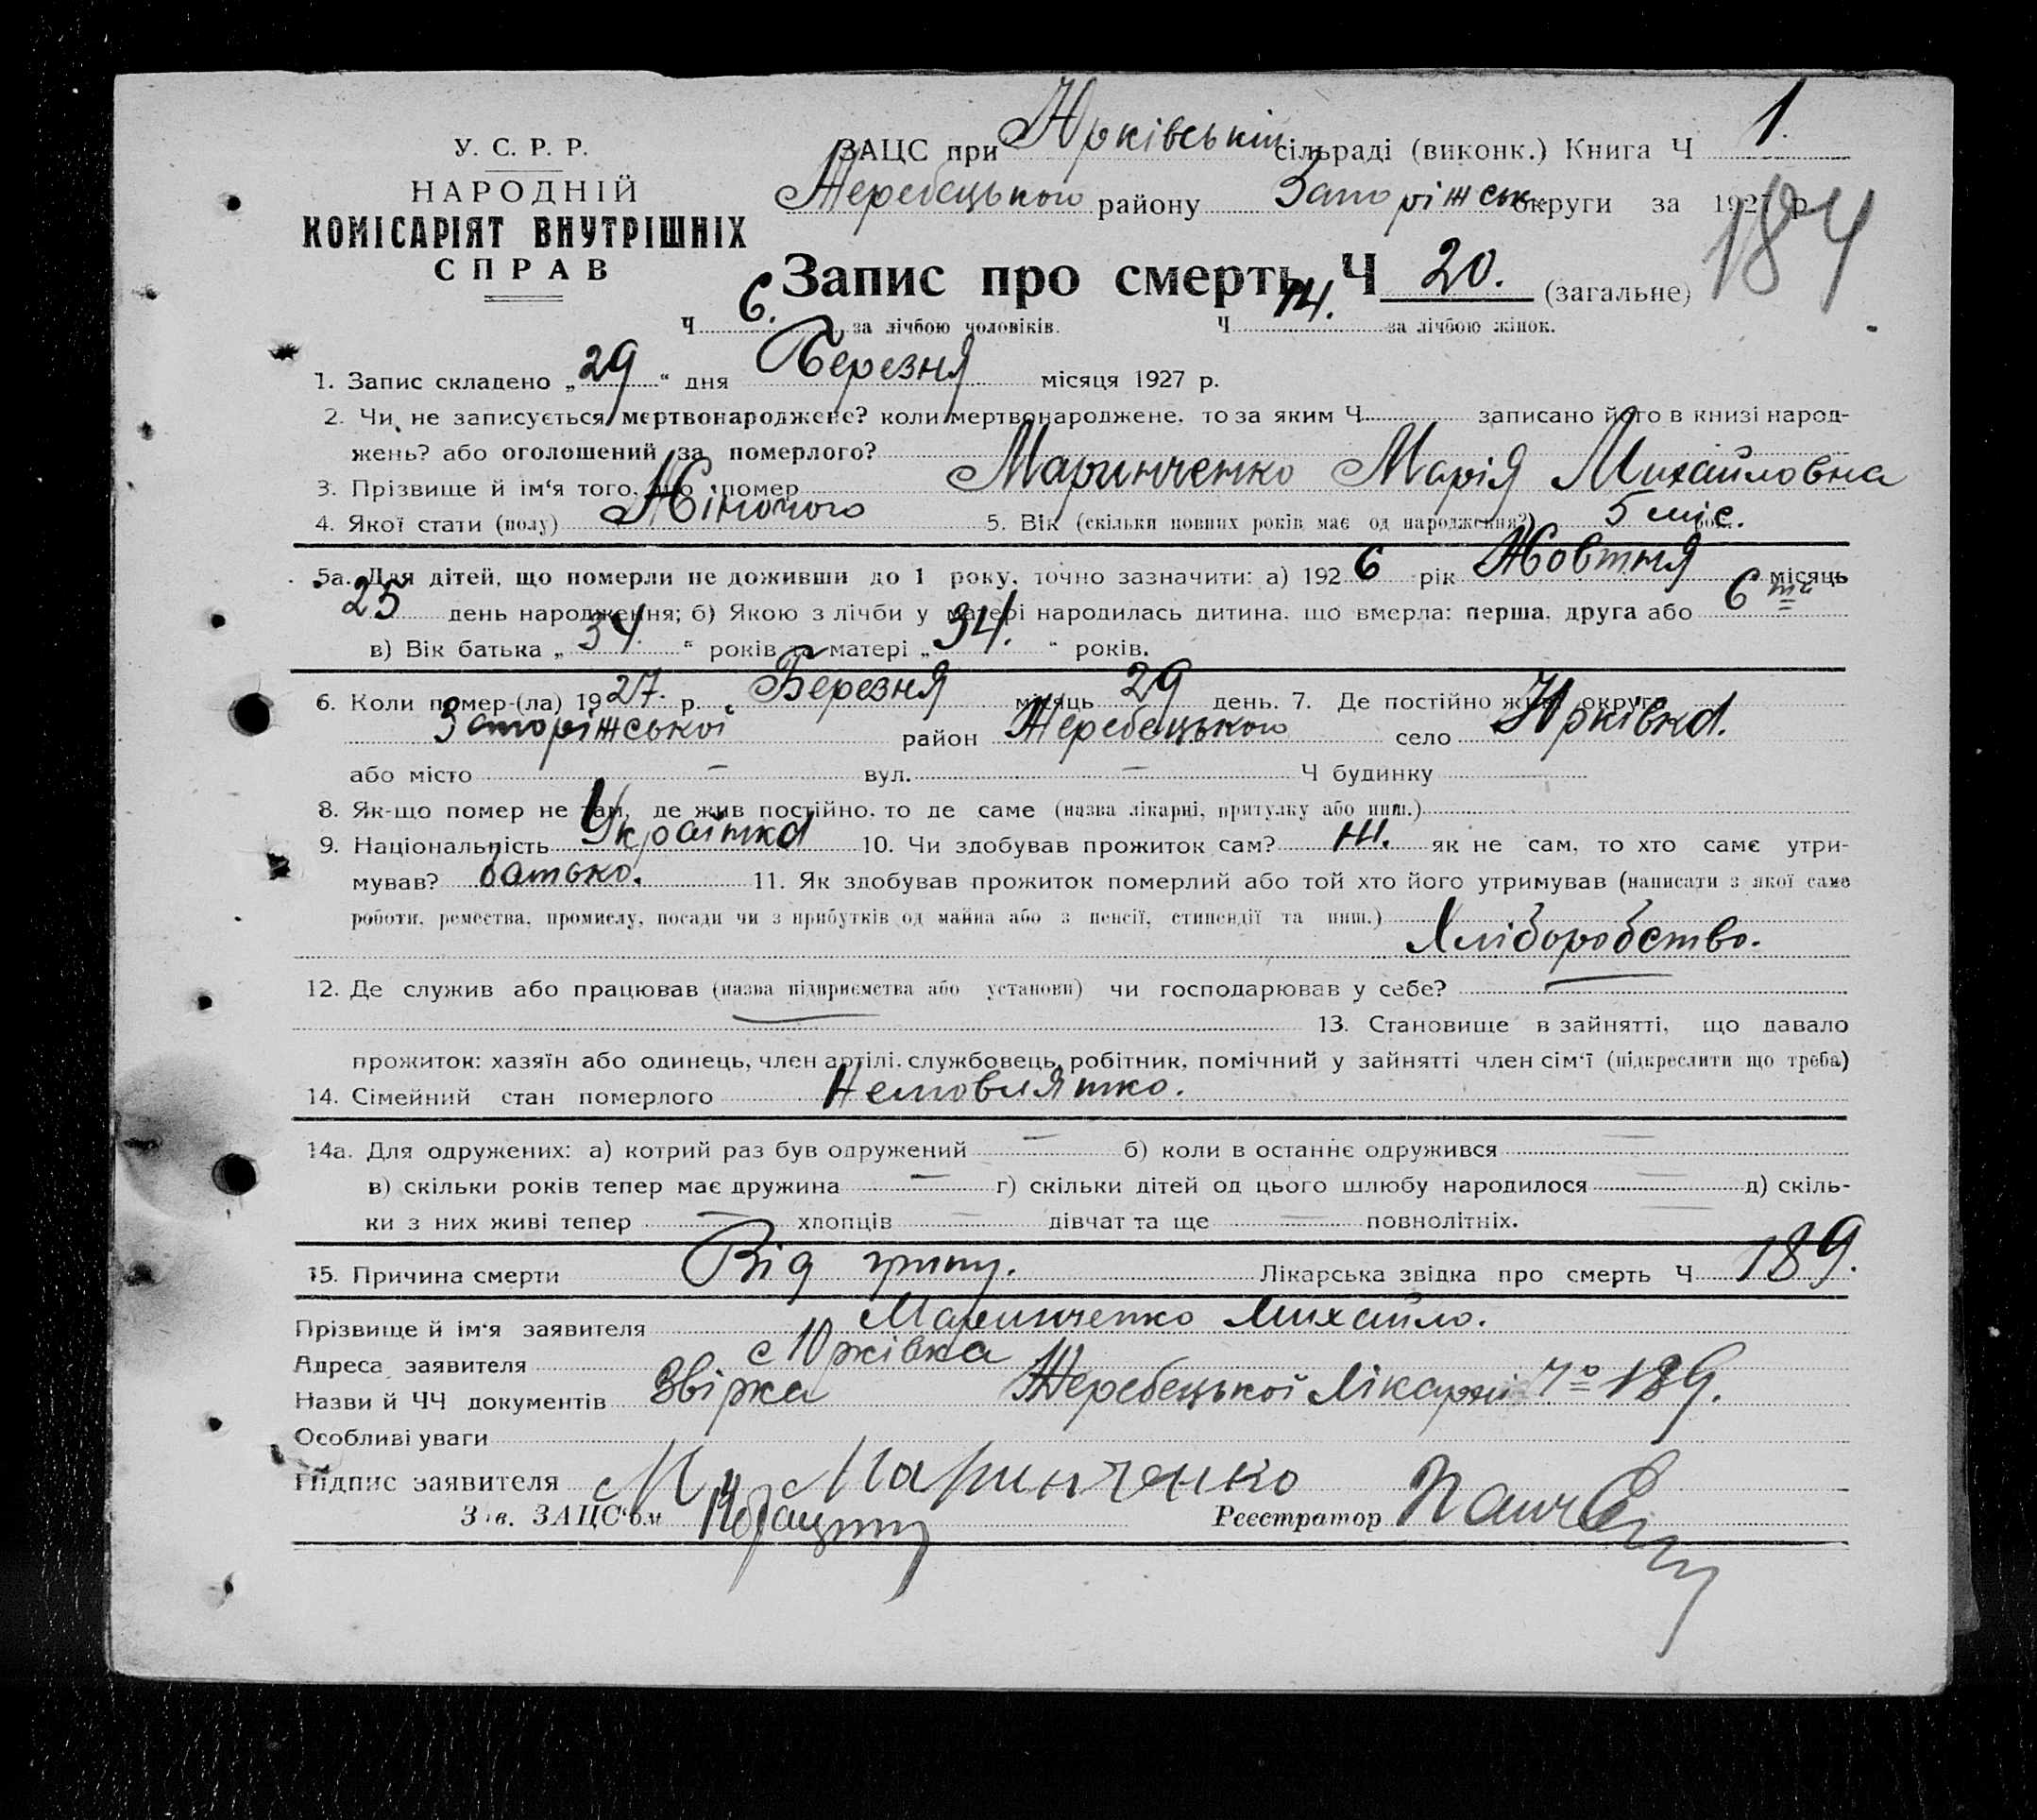 У. С. Р. Р.
НАРОДНІЙ
КОМІСАРІЯТ ВНУТРІШНІХ
СПРАВ
ЗАЦС при Юрківській сільраді (виконк.) Книга Ч 1.
Жеребецького району Запоріжськ. округи за 1927 р.
184
Запис про смерть Ч 20. (загальне)
Ч 6. за лічбою чоловіків. Ч 14. за лічбою жінок.
1. Запис складено „29“ дня Березня місяця 1927 р.
2. Чи не записується мертвонароджене? коли мертвонароджене, то за яким Ч записано його в книзі народ-
жень? або оголошений за померлого?
3. Прізвище й ім‘я того, що помер Маринченко Марія Михайловна
4. Якої стати (полу) Жіночого 5. Вік (скільки повних років має од народження?) 5 міс.
5а. Для дітей, що померли не доживши до 1 року, точно зазначити: а) 1926 рік Жовтня місяць
25 день народження; б) Якою з лічби у матері народилась дитина, що вмерла: перша, друга або 6 та
в) Вік батька „34“ років та матері „34.“ років.
6. Коли помер-(ла) 1927. р. Березня місяць 29 день. 7. Де постійно жив: округа
Запоріжської район Жеребецького село Юрківка.
або місто — вул. — Ч будинку
8. Як-що помер не там, де жив постійно, то де саме (назва лікарні, притулку або инш.)
9. Національність Українка 10. Чи здобував прожиток сам? Ні. як не сам, то хто саме утри-
мував? батько. 11. Як здобував прожиток померлий або той хто його утримував (написати з якої саме
роботи, ремества, промислу, посади чи з прибутків од майна або з пенсії, стипендії та инш.)
Хліборобство.
12. Де служив або працював (назва підприємства або установи) чи господарював у себе? —
— 13. Становище в зайнятті, що давало
прожиток: хазяїн або одинець, член артілі, службовець, робітник, помічний у зайнятті член сім‘ї (підкреслити що треба)
14. Сімейний стан померлого Немовлятко.
14а. Для одружених: а) котрий раз був одружений — б) коли в останнє одружився —
в) скільки років тепер має дружина — г) скільки дітей од цього шлюбу народилося — д) скіль-
ки з них живі тепер — хлопців — дівчат та ще — повнолітніх.
15. Причина смерти Від грипу. Лікарська звідка про смерть Ч 189.
Прізвище й ім‘я заявителя Маринченко Михайло.
Адреса заявителя с Юрківка
Назви й ЧЧ документів Звірка Жеребецької Лікарні Чо 189.
Особливі уваги
Підпис заявителя М Маринченко
Зав. ЗАЦС‘ом Реєстратор